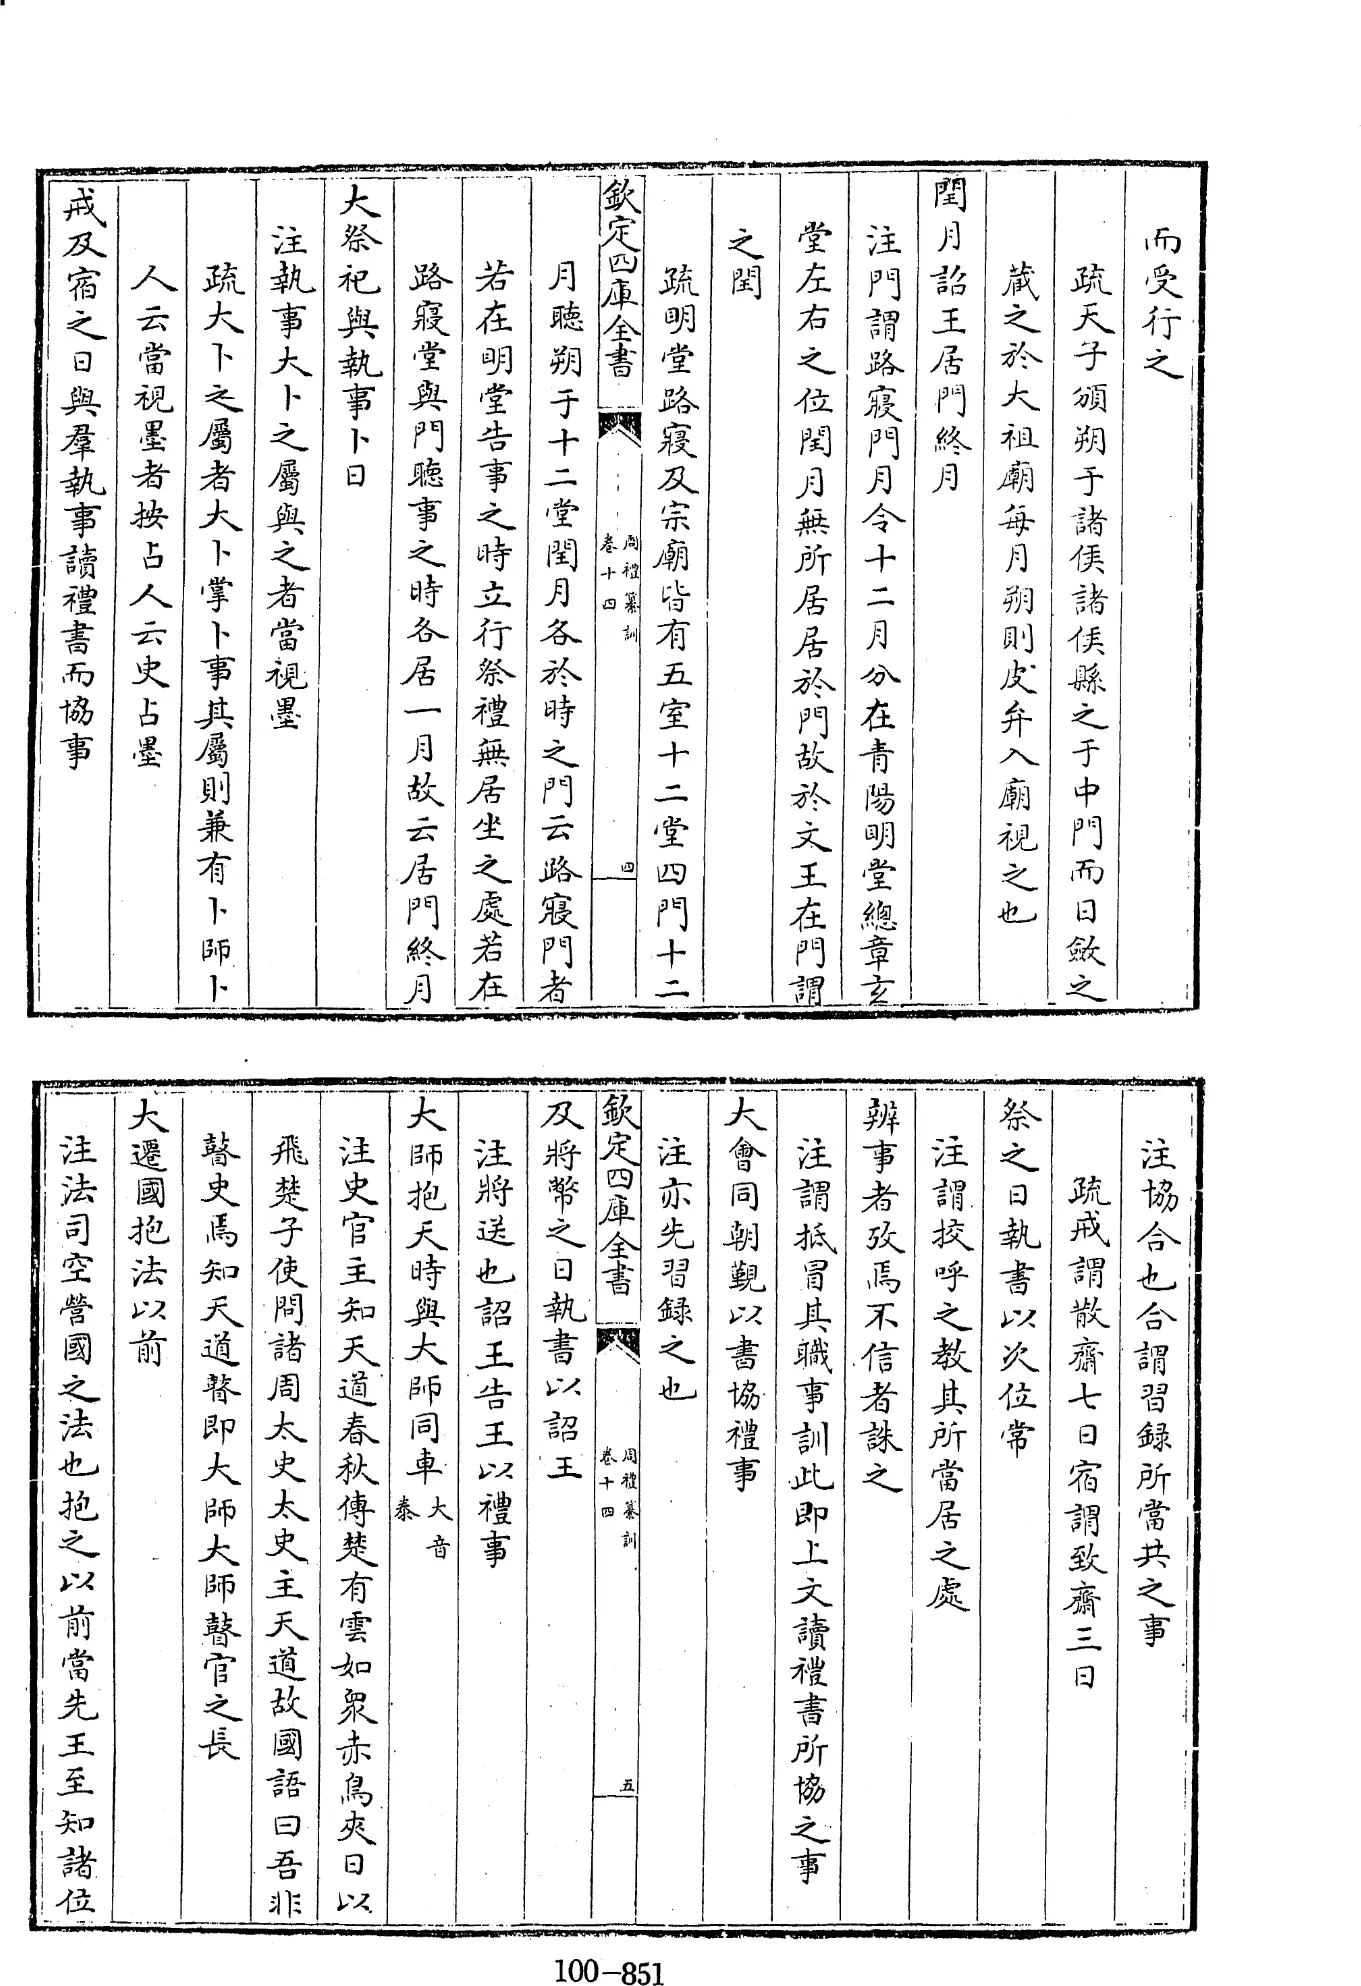 而受行之
疏天子頒朔于諸侯諸侯縣之于中門而日斂之
藏之於大祖廟每月朔則皮弁入廟視之也
閏月詔王居門終月
注門謂路寢門月令十二月分在青陽明堂總章玄
堂左右之位閏月無所居居於門故於文王在門謂
之閏
疏明堂路寢及宗廟皆有五室十二堂四門十二
欽定四庫全書
周禮纂訓
卷十四
四
月聽朔于十二堂閏月各於時之門云路寢門者
若在明堂告事之時立行祭禮無居坐之處若在
路寢堂與門聽事之時各居一月故云居門終月
大祭祀與執事卜日
注執事大卜之屬與之者當視墨
疏大卜之屬者大卜掌卜事其屬則兼有卜師卜
人云當視墨者按占人云史占墨
戒及宿之日與羣執事讀禮書而協事
注協合也合謂習録所當共之事
疏戒謂散齋七日宿謂致齋三日
祭之日執書以次位常
注謂挍呼之教其所當居之處
辨事者攷焉不信者誅之
注謂抵冒其職事訓此即上文讀禮書所協之事
大會同朝覲以書協禮事
注亦先習録之也
欽定四庫全書
周禮纂訓
卷十四
五
及將幣之日執書以詔王
注將送也詔王告王以禮事
大師抱天時與大師同車大音泰
注史官主知天道春秋傳楚有雲如衆赤鳥夾日以
飛楚子使問諸周太史太史主天道故國語曰吾非
瞽史焉知天道瞽即大師大師瞽官之長
大遷國抱法以前
注法司空營國之法也抱之以前當先王至知諸位
100-851